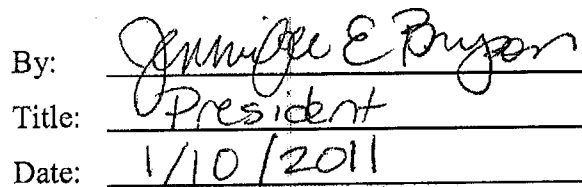 By: Jennifer E Bryson
Title: President
Date: 1/10/2011